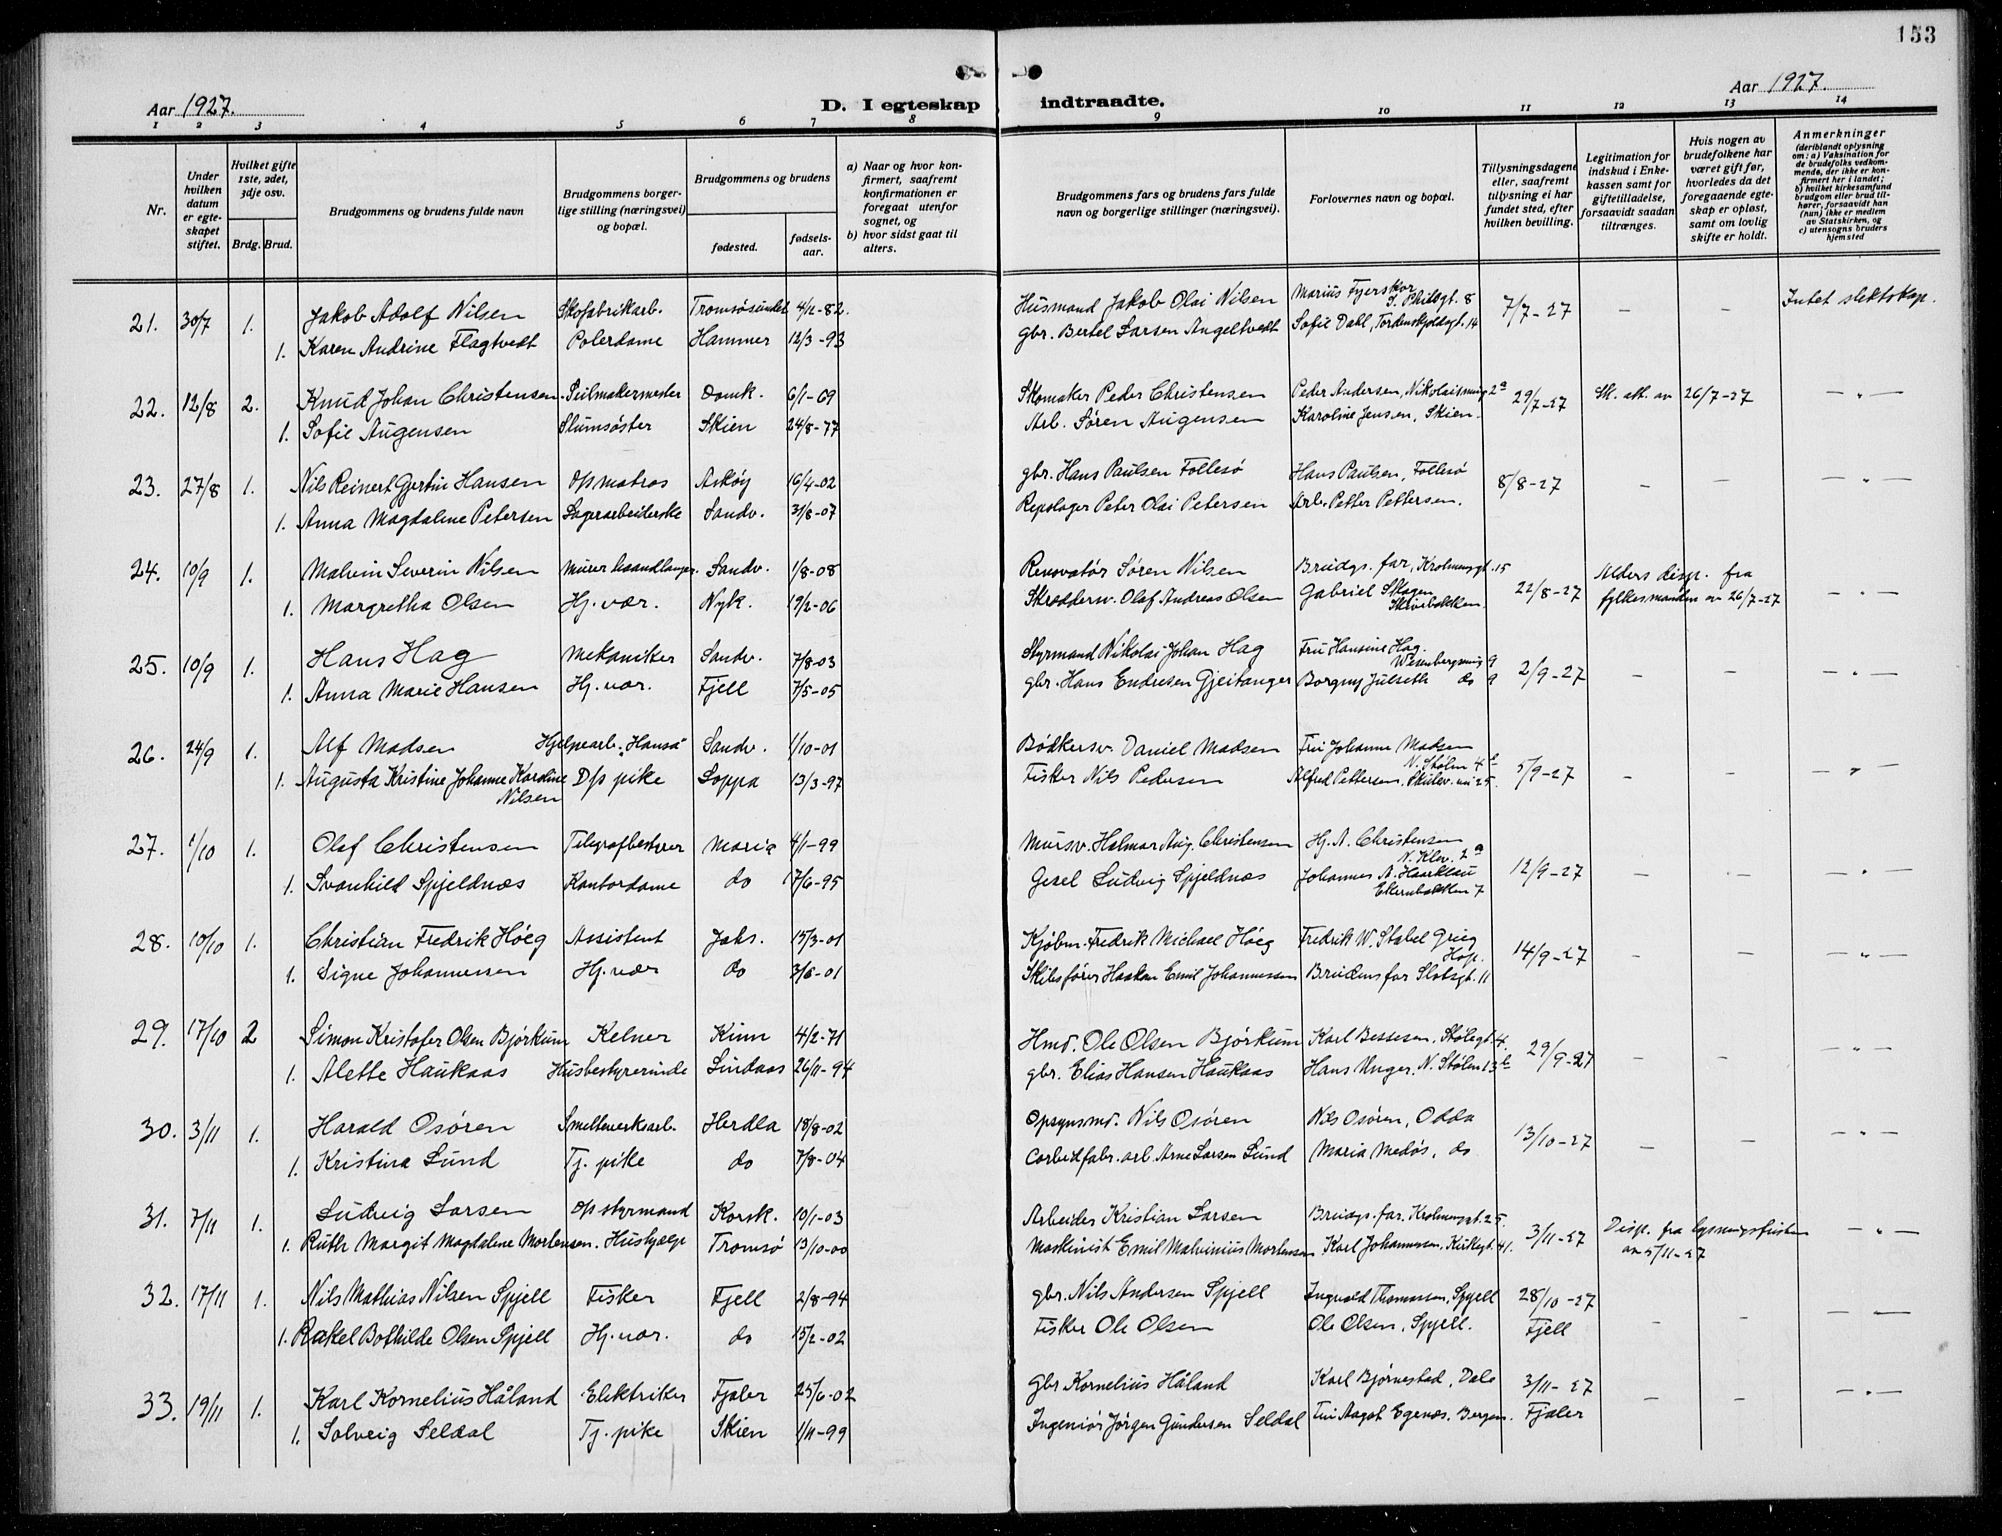 153
Aar 1927.
D. I egteskap indtraadte.
Aar 1927.
1 2 3 4 5 6 7 8 9 10 11 12 13 14
Nr.
Under hvilken datum er egteskapet stiftet.
Hvilket gifte 1ste, 2det, 3dje osv.
Brdg. Brud.
Brudgommens og brudens fulde navn
Brudgommens borgerlige stilling (næringsvei) og bopæl.
Brudgommens og brudens
fødested.
fødselsaar.
a) Naar og hvor konfirmert, saafremt konfirmationen er foregaat utenfor sognet, og
b) hvor sidst gaat til alters.
Brudgommens fars og brudens fars fulde navn og borgerlige stillinger (næringsvei).
Forlovernes navn og bopæl.
Tillysningsdagene eller, saafremt tillysning ei har fundet sted, efter hvilken bevilling.
Legitimation for indskud i Enkekassen samt for giftetilladelse, forsaavidt saadan tiltrænges.
Hvis nogen av brudefolkene har været gift før, hvorledes da det foregaaende egteskap er opløst, samt om lovlig skifte er holdt.
Anmerkninger
(deriblandt oplysning om: a) Vaksination for de brudefolks vedkommende, der ikke er konfirmert her i landet;
b) hvilket kirkesamfund brudgom eller brud tilhører, forsaavidt han (hun) ikke er medlem av Statskirken, og
c) utensogns bruders hjemsted
21. 30/7 1. Jakob Adolf Nilsen Skofabrikarb. Tromsøsundet 4/12-82. Husmand Jakob Olai Nilsen Marius Fjerskor S. Philsgt. 8 7/7-27 — — Intet slektskap.
1. Karen Andrine Flagtvedt Polerdame Hammer 12/3-93 gbr. Bertel Larsen Angeltvedt Sofie Dahl, Tordenskjoldsgt. 14
22. 12/8 2. Knud Johan Christensen Seilmakermester Domk. 6/1-69 Skomaker Peder Christensen Peder Andersen, Nikolaismug 2a 29/7-27 Sk. att. av 26/7-27 — „ —
1. Sofie Augensen Slumsøster Skien 24/8-77 Arb. Søren Augensen Karoline Jensen, Skien.
23. 27/8 1. Nils Reinert Gjertin Hansen D/s matros Askøy 16/4-02 gbr. Hans Paulsen Follesø Hans Paulsen, Follesø 8/8-27 — — — „ —
1. Anna Magdalene Petersen Lagerarbeiderske Sandv. 31/8-07 Repslager Peter Olai Petersen Arb. Petter Pettersen.
24. 10/9 1. Malvin Severin Nilsen Murerhaandlanger. Sandv. 1/8-08 Renovatør Søren Nilsen Brudgs. far, Krolmugt. 15 22/8-27 Alders disp. fra fylkesmanden av 26/7-27 — „ —
1. Margretha Olsen Hj. vær. Nyk. 19/2-06 Skræddersv. Olaf Andreas Olsen Gabriel Skagen Skivebakken.
25. 10/9 1. Hans Hag Mekaniker Sandv. 7/8-03 Styrmand Nikolai Johan Hag Fru Hansine Hag. Wesenbergsmug 9 2/9-27 — — — „ —
1. Anna Marie Hansen Hj. vær. Fjell 7/5-05 gbr. Hans Endresen Gjeitanger Borgny Julseth do 9
26. 24/9 1. Alf Madsen Hjelpearb. „Hansa“ Sandv. 1/10-01 Bødkersv. Daniel Madsen Fru Johanne Madsen N. Stølen 4b 5/9-27 — — — „ —
1. Augusta Kristine Johanne Karoline Nilsen D/s pike Loppa 13/3-97 Fisker Nils Pedersen Alfred Pettersen, Skutev. 25.
27. 1/10 1. Olaf Christensen Telegrafbestyrer Maria 4/1-99 Mursv. Halmar Aug. Christensen Hj. A. Christensen N. Klev. 2a 12/9-27 — — — „ —
1. Svanhild Spjeldnæs Kontordame do 17/6-95 Gesel Ludvig Spjeldnæs Johannes A. Haarklau Ekernbakken 7
28. 10/10 1. Christian Fredrik Høeg Assistent Johs. 15/3-01 Kjøbm. Fredrik Michael Høeg Fredrik W. Stabel Grieg Hop. 14/9-27 — — — „ —
1. Signe Johannessen Hj. vær do 3/6-01 Skibsfører Haakon Emil Johannessen Brudens far Slotsgt. 11
29. 17/10 2 Simon Kristofer Olsen Bjørkum Kelner Kinn 4/2-71 Hmd. Ole Olsen Bjørkum Karl Bessesen, Stølegt. 4. 29/9-27 — — — „ —
1. Alette Haukaas Husbestyrerinde Lindaas 26/11-94 gbr. Elias Hansen Haukaas Hans Unger, N. Stølen 13b
30. 3/11 1. Harald Osøren Smelteverksarb. Herdla 18/8-02 Opsynsmd. Nils Osøren Nils Osøren, Odda 13/10-27 — — — „ —
1. Kristina Lund Tj. pike do 7/8-04 Carbidfabr. arb. Arne Larsen Lund Maria Medøs, do
31. 7/11 1. Ludvig Larsen D/s styrmand Korsk. 10/1-03 Arbeider Kristian Larsen Brudgs. far. Krolmugt. 25. 3/11-27 Disp. fra lysningsfristen av 5/11-27 — „ —
1. Ruth Margit Magdalene Mortensen. Hushjælp Tromsø 13/10-00 Maskinist Emil Malvinius Mortensen Karl Johannessen, Kirkegt. 41.
32. 17/11 1. Nils Mathias Nilsen Spjell Fisker Fjell 2/8-94 gbr. Nils Andersen Spjell Ingvald Thomassen, Spjell 28/10-27 Fjell — — — „ —
1. Rakel Bothilde Olsen Spjell Hj. vær. do 15/2-02 Fisker Ole Olsen Ole Olsen, Spjell.
33. 19/11 1. Karl Kornelius Håland Elektriker Fjaler 25/6-02 gbr Kornelius Håland Karl Bjørnestad, Dale 3/11-27 Fjaler — — — „ —
1. Solveig Seldal Tj. pike Skien 1/11-99 Ingeniør Jørgen Gundersen Seldal Fru Aagot Egenæs, Bergen.